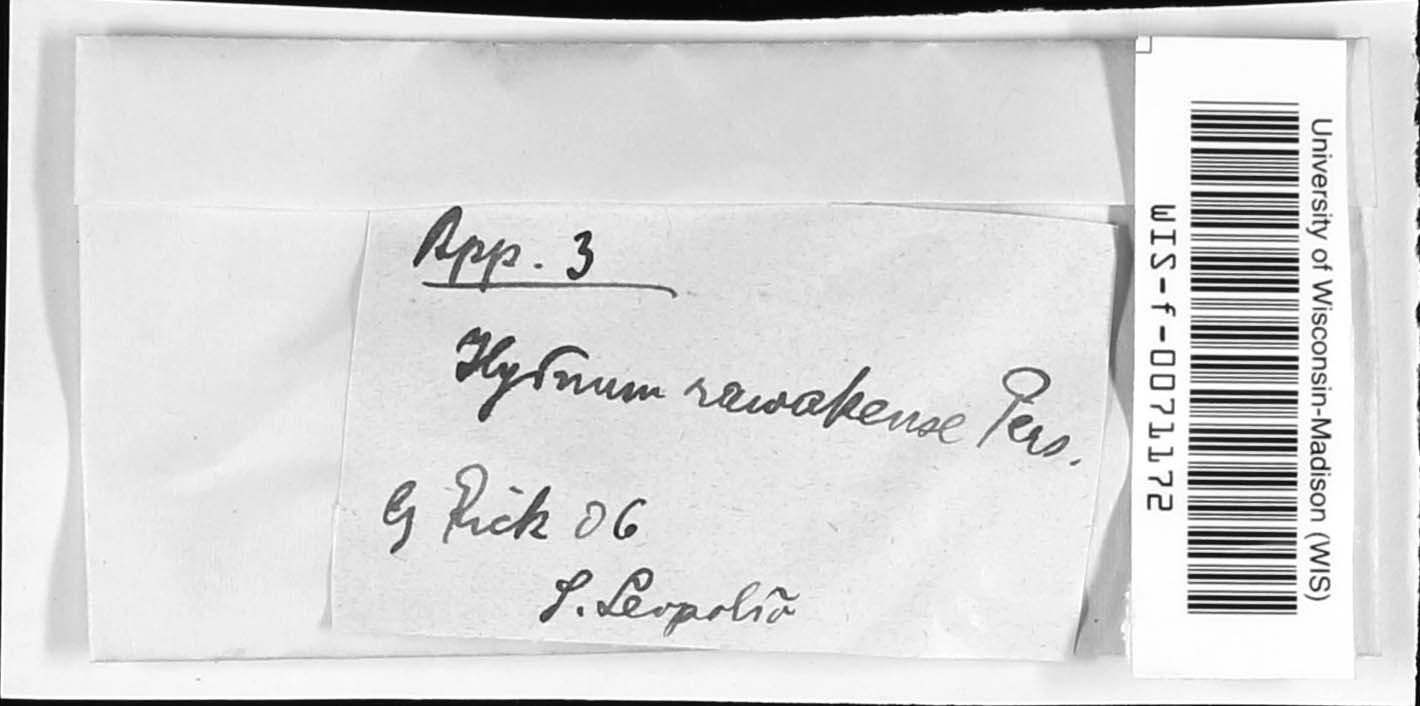 App. 3
Hydnum rawakense Pers.
Rick 06
S. Leopoldo
University of Wisconsin-Madison (WIS)
WIS-f-0071172